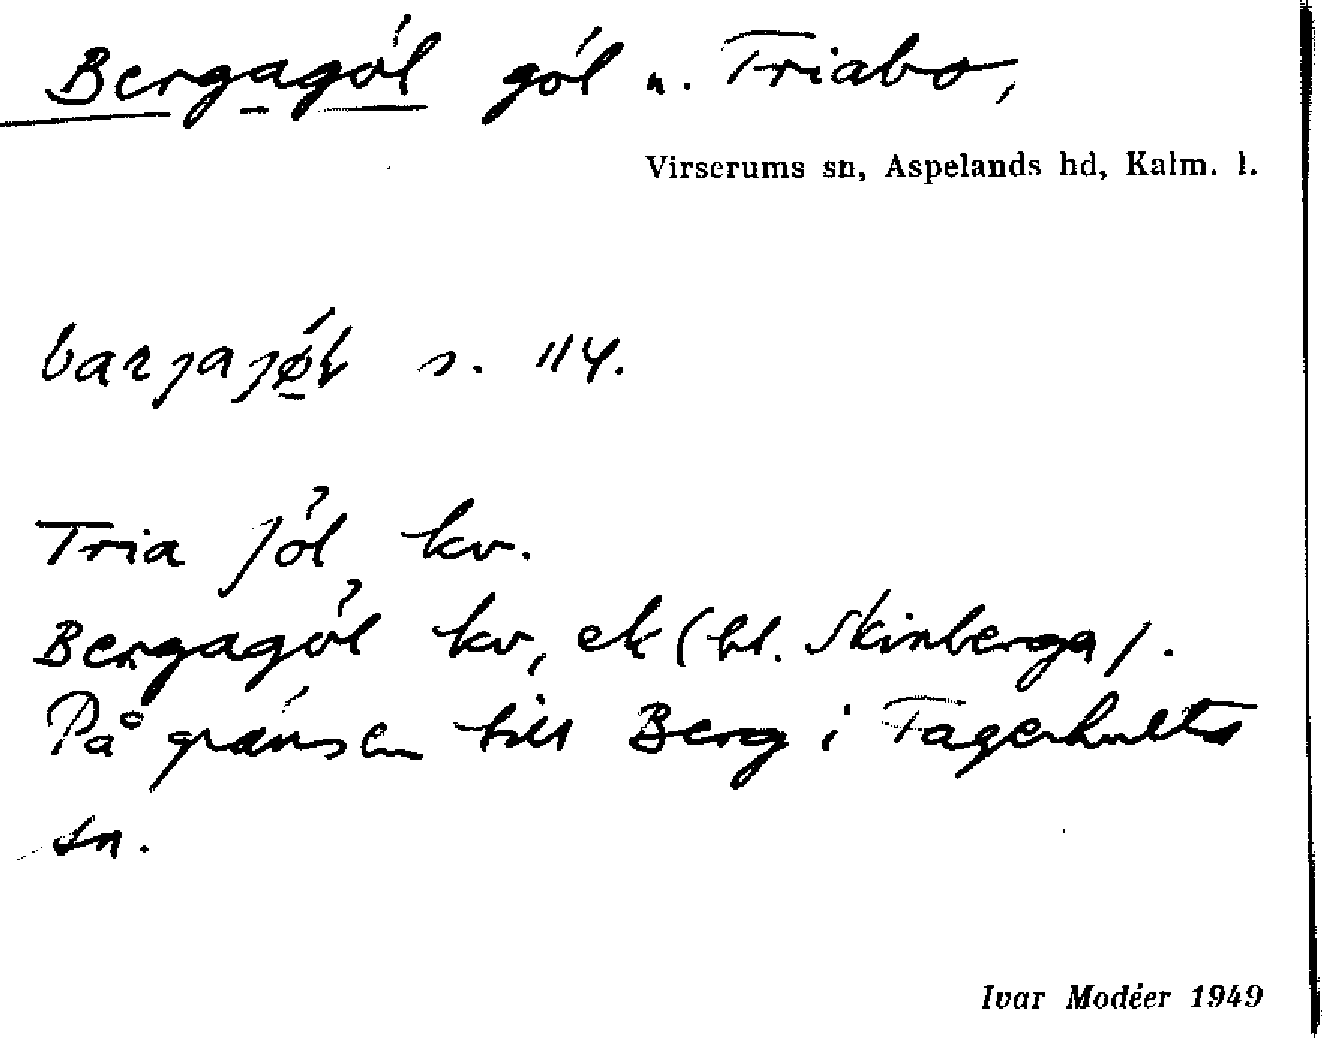 Bergagöl göl u. Triabo,
Virserums sn, Aspelands hd, Kalm. l.
s. 114.
Tria jöl kv.
Bergagöl kv, ek (bl. Skinberga).
På gränsen till Berg i Fagerhults
sn.
Ivar Modéer 1949